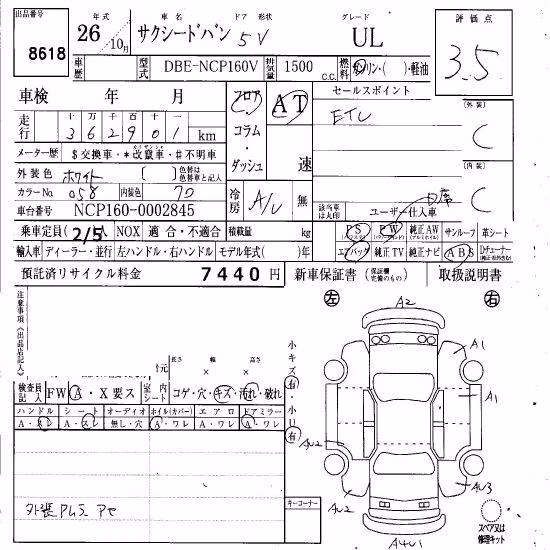 出品番号
8618
年式 車名 ドア 形状 グレード
26 10月 サクシードバン 5V UL
車歴 型式 DBE-NCP160V 排気量 1500 C.C. 燃料 ガソリン・( )・軽油
評価点
3.5
車検 年 月
走行 十 万 千 百 十 一
3 6 2 9 0 1 km
メーター歴 $交換車・*改竄車・#不明車
フロア
コラム
・
ダッシュ
AT
速
セールスポイント
ETC
(外装)
C
(内装)
C
外装色 ホワイト ( ) 色替車は色替車名と記入
カラーNo. 058 内装色 70
冷房 A/C 無
車台番号 NCP160-0002845
該当装備は丸印 ユーザー仕入車
乗車定員 (2/5)人 NOX 適合・不適合 積載量 kg
PS PW 純正AW サンルーフ 革シート
輸入車 ディーラー・並行 左ハンドル・右ハンドル モデル年式( )年
エアバッグ 純正TV 純正ナビ ABS
預託済リサイクル料金 7440円
新車保証書 取扱説明書
注意事項(出品店記入)
長さ 幅 高さ
× ×
検査員記入 FW A・X要ス 室内シート コゲ・穴・キズ・汚れ・破れ
ハンドル シート オーディオ ホイル(カバー) エアロ ドアミラー
A・スレ A・スレ 無し・穴 A・ワレ A・ワレ A・ワレ
外装
キーコーナー
小キズ 有
・
小U 有
左 右
A2
A1
A1
AU2
AU2
AU3
A4U1
スペア又は修理キット